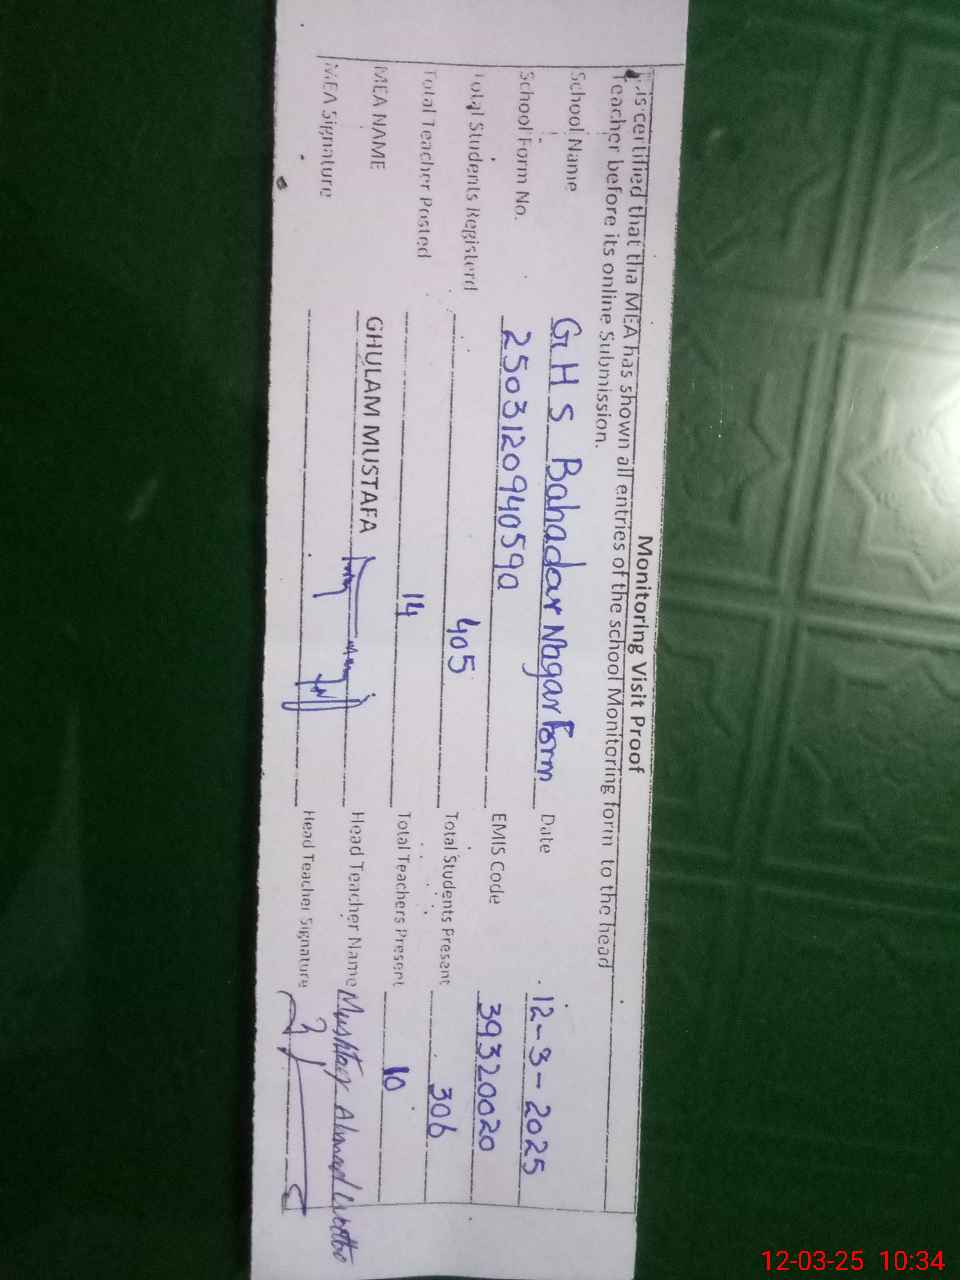 Monitoring Visit Proof
is certified that tha MEA has shown all entries of the school Monitoring form to the head
Teacher before its online Submission.
School Name GHS Bahadar Nagar Farm Date 12-3-2025
School Form No. 250312094059a EMIS Code 39320020
Total Students Registerd 405 Total Students Present 306
Total Teacher Posted 14 Total Teachers Present 10
MEA NAME GHULAM MUSTAFA Head Teacher Name Mushtaq Ahmad Wattoo
MEA Signature Head Teacher Signature
12-03-25 10:34